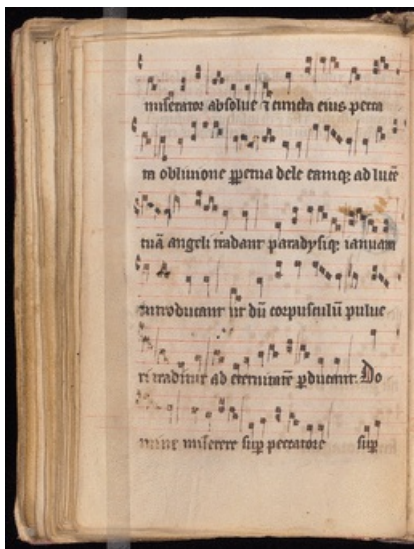 miserator absolue ⁊ cuncta eius pecca
ta obliuione ꝑpetua dele eamqꝫ ad lucē
tuā angeli tradant paradysiqꝫ ianuam
introducant ut dū corpusculū pulue
ri traditur ad eternitatē ꝑducant. Do
mine miserere sup̄ peccatore sup̄